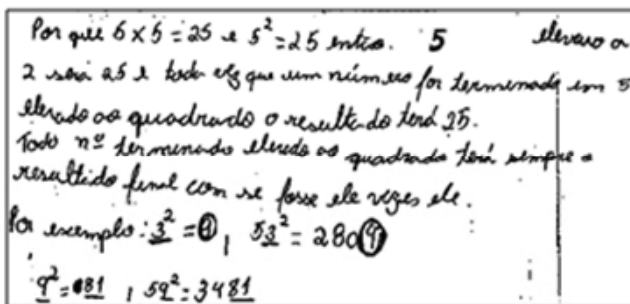 Por quê 5 x 5 = 25 e 5² = 25 então. 5 elevavo a
2 será 25 e toda vez que um número for terminado em 5
elevado ao quadrado o resultado terá 25.
Todo nº terminado elevado ao quadrado terá sempre o
resultado final com se fosse ele vezes ele.
Por exemplo: 3² = 9, 53² = 2809
9² = 81, 59² = 3481